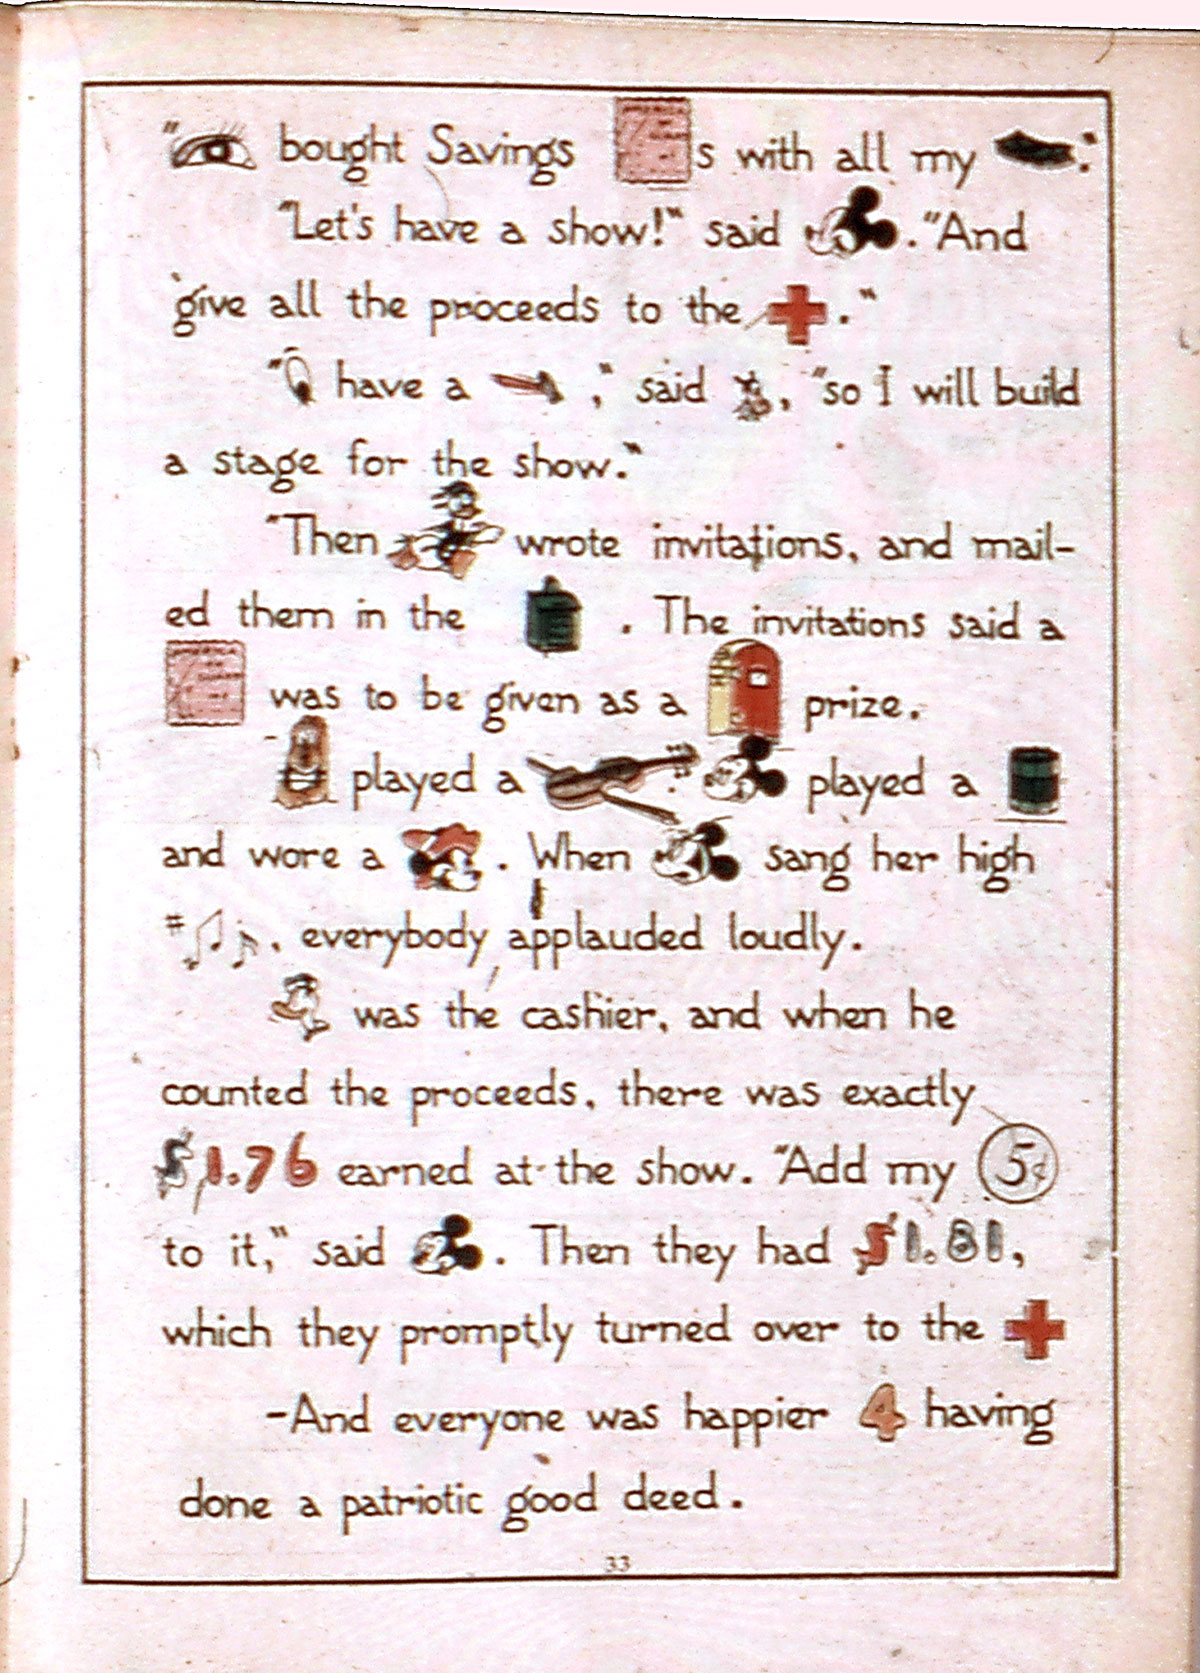 " bought Savings s with all my ."
"Let's have a show!" said . "And
give all the proceeds to the ."
" have a ," said , "so I will build
a stage for the show."
"Then wrote invitations, and mail-
ed them in the . The invitations said a
was to be given as a prize.
played a . played a
and wore a . When sang her high
#♫♪, everybody applauded loudly.
was the cashier, and when he
counted the proceeds, there was exactly
$1.76 earned at the show. "Add my 5¢
to it," said . Then they had $1.81,
which they promptly turned over to the
-And everyone was happier 4 having
done a patriotic good deed.
33